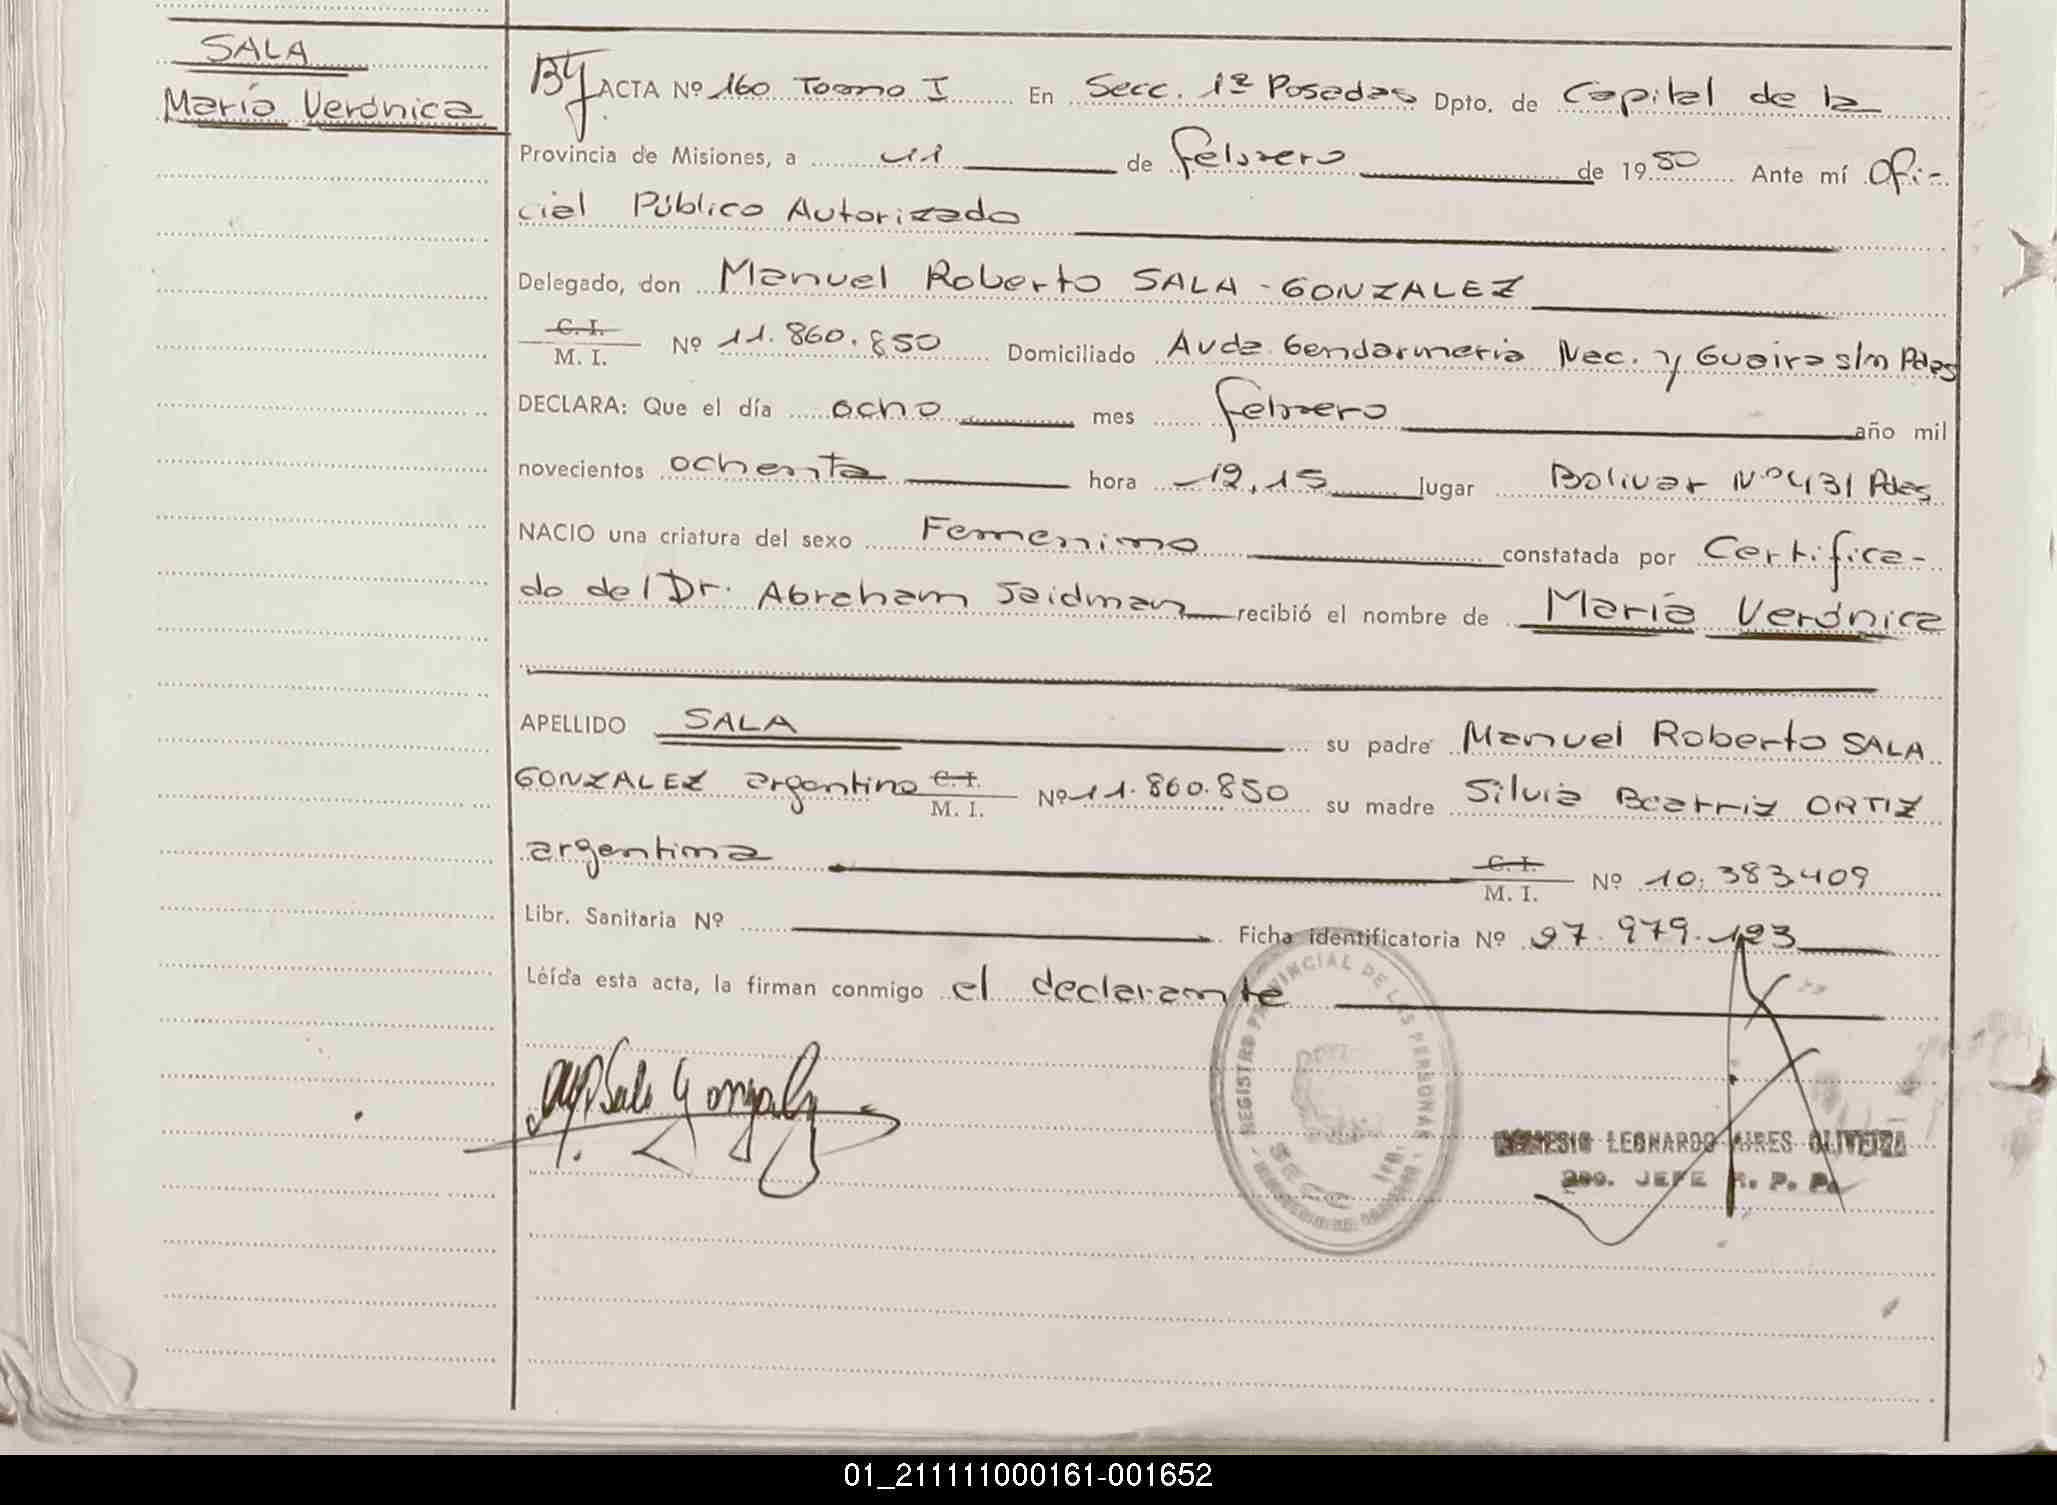 SALA
María Verónica
ACTA Nº 160 Tomo I En Secc. 1ª Posadas Dpto. de Capital de la
Provincia de Misiones, a 11 de febrero de 1980 Ante mí Ofi-
cial Público Autorizado
Delegado, don Manuel Roberto SALA - GONZALEZ
C. I.
M. I. Nº 11.860.850 Domiciliado Avda. Gendarmeria Nac. y Guaira s/n Pdas
DECLARA: Que el día ocho mes febrero año mil
novecientos ochenta hora 12,15 lugar Bolivar Nº 431 Pdas
NACIO una criatura del sexo Femenino constatada por Certifica-
do del Dr. Abraham Saidman recibió el nombre de María Verónica
APELLIDO SALA su padre Manuel Roberto SALA
GONZALEZ argentino C. I.
M. I. Nº 11.860.850 su madre Silvia Beatriz ORTIZ
argentina C. I.
M. I. Nº 10.383.409
Libr. Sanitaria Nº Ficha identificatoria Nº 27.979.123
Léída esta acta, la firman conmigo el declarante
REGISTRO PROVINCIAL DE LAS PERSONAS
Sala Gonzalez
LEONARDO AIRES OLIVEIRA
2do. JEFE R. P. P.
01_211111000161-001652